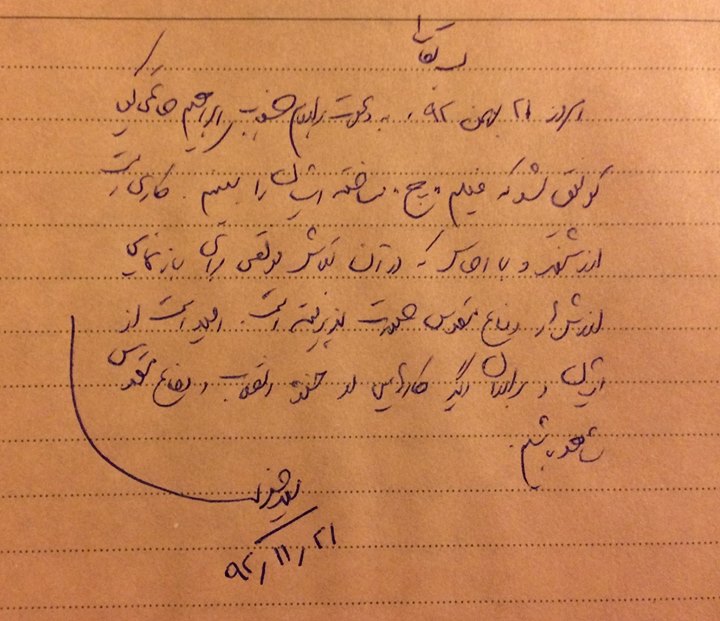 بسمه تعالی
امروز ۲۱ بهمن ۹۲، به دعوت برادرم جناب ابراهیم حاتمی کیا
توفیق شد که فیلم "چ" ساخته ایشان را ببینم. کاری است
ارزشمند و با احساس که در آن تلاش موفقی برای بازنمایی
ارزشهای دفاع مقدس صورت پذیرفته است. امید است از
ایشان و برادران دیگر کارهایی در حوزه انقلاب و دفاع مقدس
شاهد باشیم.
۹۲/۱۱/۲۱